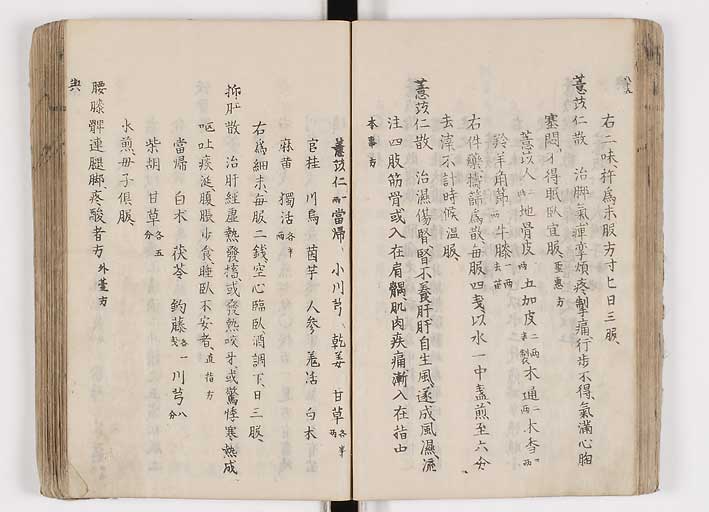 右二味杵為末服方寸匕日三服、
薏苡仁散　治脚氣痺攣煩疼掣痛、行步不得、氣滿心胸
塞悶、不得眠臥宜服、聖惠方
薏苡人二両　地骨皮一両　五加皮二両
羚羊角　牛膝一両去苗
右件藥搗篩為散、每服四戔、以水一中盞、煎至六分
去滓不計時候温服、
薏苡仁散　治濕傷腎腎不養肝肝自生風、遂成風濕、流
注四肢筋骨或入在肩髃、肌肉疼痛漸入在指中
本事方
薏苡仁一両　當帰　小川芎　乾姜　甘草各半両
官桂　川烏　茵芋　人參　羗活　白朮
麻黄　獨活各半両
右為細末、每服二錢、空心臨臥、酒調下、日三服、
抑肝散　治肝經虚熱發搐、或發熱咬牙或驚悸寒熱或
嘔吐痰涎、腹脹少食睡臥不安者、直指方
當帰　白朮　茯苓　鈎藤各一戔　川芎八分
柴胡　甘草各五分
水煎母子俱服、
腰膝髀連腿脚疼酸者方　外䑓方